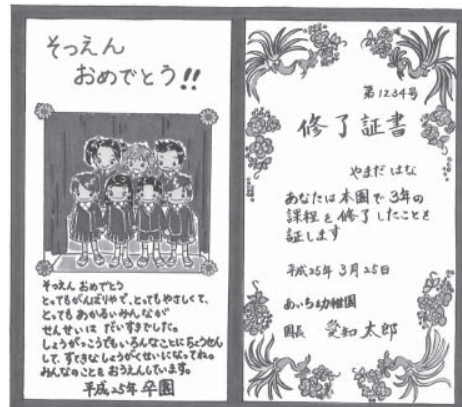 そつえん
おめでとう!!
そつえん おめでとう
とってもがんばりやで、とってもやさしくて、
とってもあかるいみんなが
せんせいは だいすきでした。
しょうがっこうでもいろんなことにちょうせん
して、すてきなしょうがくせいになってね。
みんなのことをおうえんしています。
平成25年 卒園
第1234号
修了証書
やまだ はな
あなたは本園で3年の
課程を修了したことを
証します
平成25年 3月25日
あいち幼稚園
園長 愛知太郎